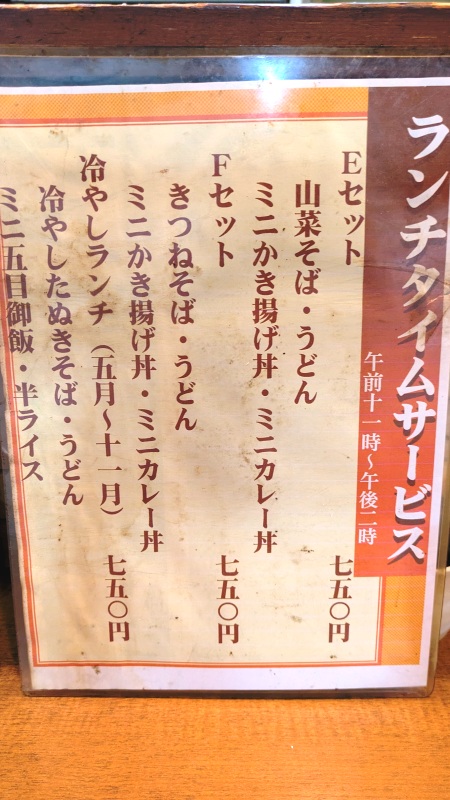 ランチタイムサービス
午前十一時～午後二時
Eセット
七五〇円
山菜そば・うどん
ミニかき揚げ丼・ミニカレー丼
Fセット
七五〇円
きつねそば・うどん
ミニかき揚げ丼・ミニカレー丼
冷やしランチ（五月～十一月）
七五〇円
冷やしたぬきそば・うどん
ミニ五目御飯・半ライス